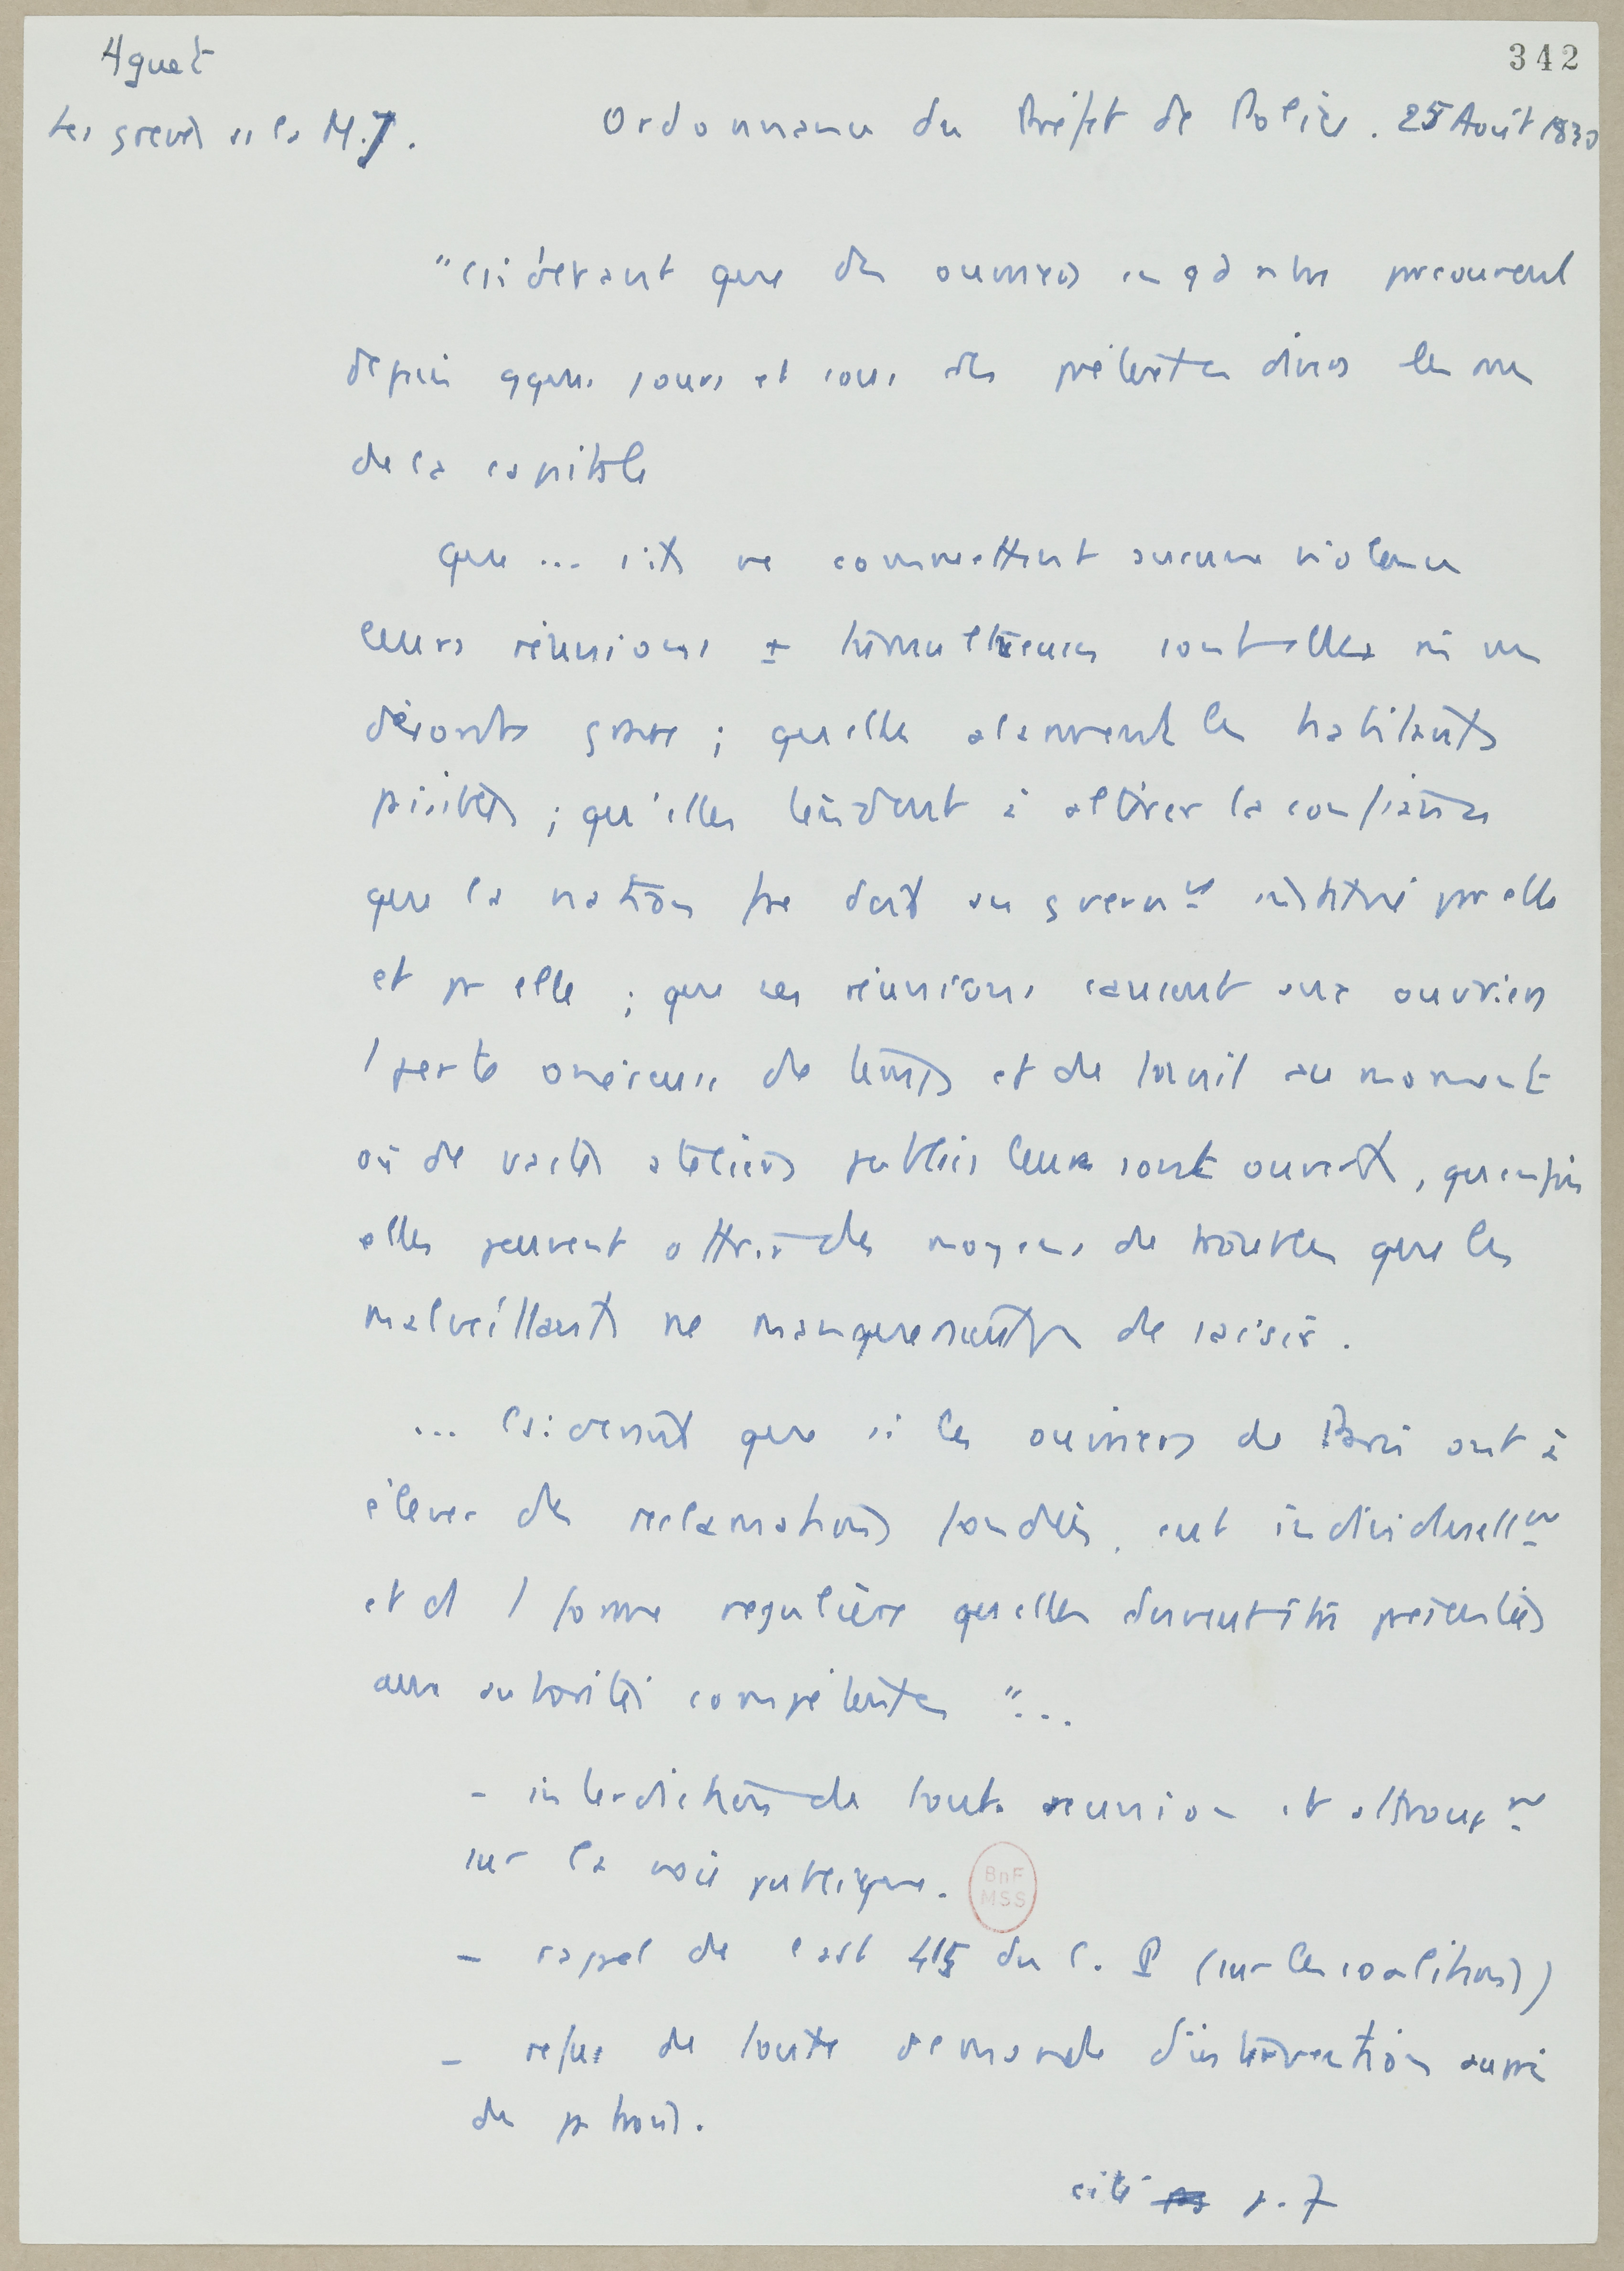 Aguet
342
Les grèves ss la M.J.
Ordonnance du Préfet de Police. 25 Août 1830
"Csidérant que des ouvriers en gd nbre parcourent
depuis qques jours et sous des prétextes divers les rues
de la capitale
que ... s'ils ne commettent aucune violence
leurs réunions ± tumultueuses sont elles mê un
désordre grave ; qu elles alarment les habitants
paisibles ; qu'elles tendent à altérer la confiance
que la nation doit au gvernt institué par elle
et pr elle ; que ces réunions causent aux ouvriers
1 perte onéreuse de temps et de travail au moment
où de vastes ateliers publics leur sont ouverts, qu enfin
elles peuvent offrir des moyens de troubles que les
malveillants ne manqueraient pas de saisir.
... Csidérant que si les ouvriers de Paris ont à
élever des réclamations fondées, c'est individuellnt
et ds 1 forme régulière qu elles doivent être présentées
aux autorités compétentes "...
- interdiction de toute réunion et attroupnt
sur la voie publique.
- rappel de l'art 415 du C. P (sur les coalitions)
- refus de toute demande d'intervention auprès
des patrons.
cité p. 7
BnF
MSS